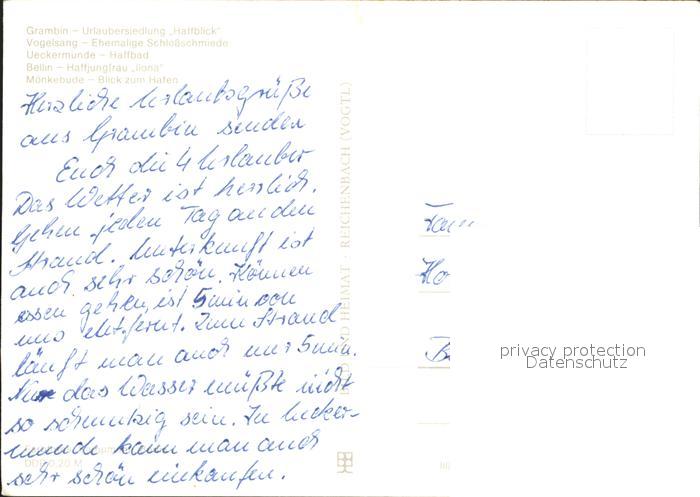 Grambin – Urlaubersiedlung „Haffblick"
Vogelsang – Ehemalige Schloßschmiede
Ueckermünde – Haffbad
Bellin – Haffjungfrau „Ilona"
Mönkebude – Blick zum Hafen
Herzliche Urlaubsgrüße
aus Grambin senden
Euch die 4 Urlauber
Das Wetter ist herrlich.
Gehen jeden Tag an den
Strand. Unterkunft ist
auch sehr schön. Können
essen gehen, ist 5 min von
uns entfernt. Zum Strand
läuft man auch nur 5 min.
Nur das Wasser müßte nicht
so schmutzig sein. In Uecker-
münde kann man auch
sehr schön einkaufen.
UND HEIMAT · REICHENBACH (VOGTL)
Fam
Ho
B
privacy protection
Datenschutz